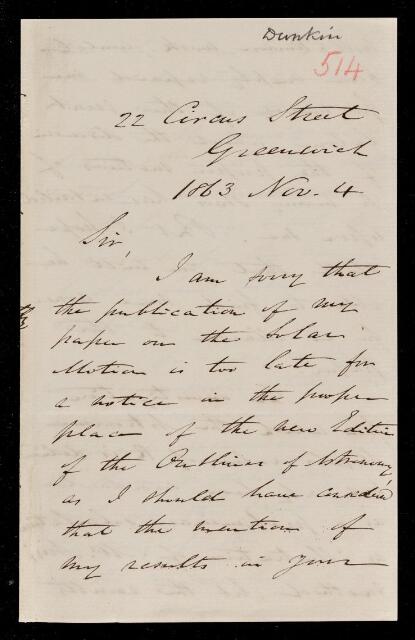 Dunkin
514
22 Circus Street
Greenwich
1863 Nov. 4
Sir,
I am sorry that
the publication of my
paper on the Solar
Motion is too late for
a notice in the proper
place of the new Edition
of the Outlines of Astronomy,
as I should have considered
that the mention of
my results in your